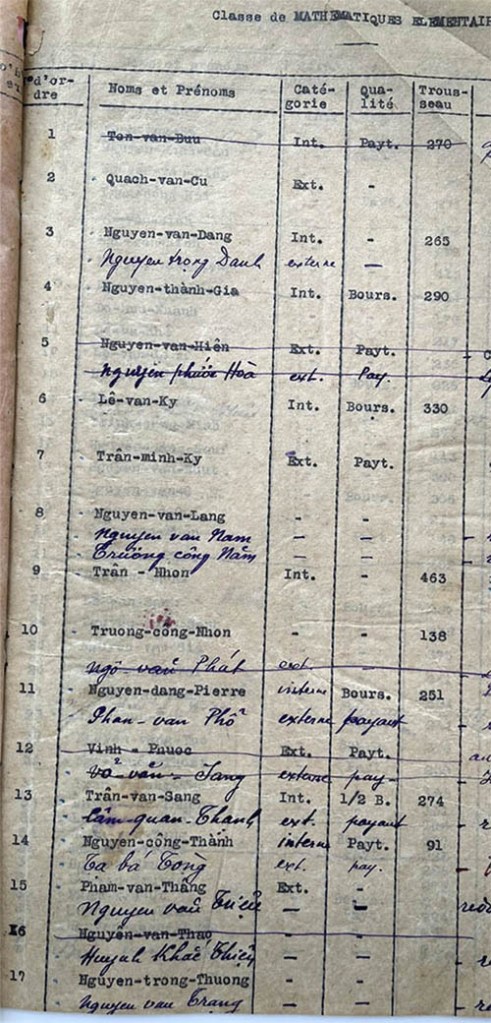 Classe de MATHEMATIQUES ELEMENTAIR
d'or-dre Noms et Prénoms Caté-gorie Qua-lité Trous-seau
1 Ton-van-Duu Int. Payt. 270
2 Quach-van-Cu Ext. -
3 Nguyen-van-Dang Int. - 265
Nguyen trọng Danh externe —
4 Nguyen-thành-Gia Int. Bours. 290
5 Nguyen-van-Hiên Ext. Payt.
Nguyễn phước Hòa ext. Pay.
6 Lê-van-Ky Int. Bours. 330
7 Trân-minh-Ky Ext. Payt.
8 Nguyen-van-Lang - -
Nguyen van Nam — —
Trương công Năm — —
9 Trân - Nhon Int. - 463
10 Truong-công-Nhon - - 138
Ngô-văn Phát ext. -
11 Nguyen-dang-Pierre interne Bours. 251
Phan-van Phô externe payant
12 Vinh - Phuoc Ext. Payt.
Võ văn Sang externe pay-
13 Trân-van-Sang Int. 1/2 B. 274
Lâm-quan-Thanh ext. payant
14 Nguyen-công-Thành interne Payt. 91
Ta bá Tòng ext. pay.
15 Pham-van-Thâng Ext. -
Nguyen văn Triệu — —
16 Nguyên-van-Thao - -
Huỳnh Khắc Thiệu — —
17 Nguyen-trong-Thuong - -
Nguyen van Trang — —